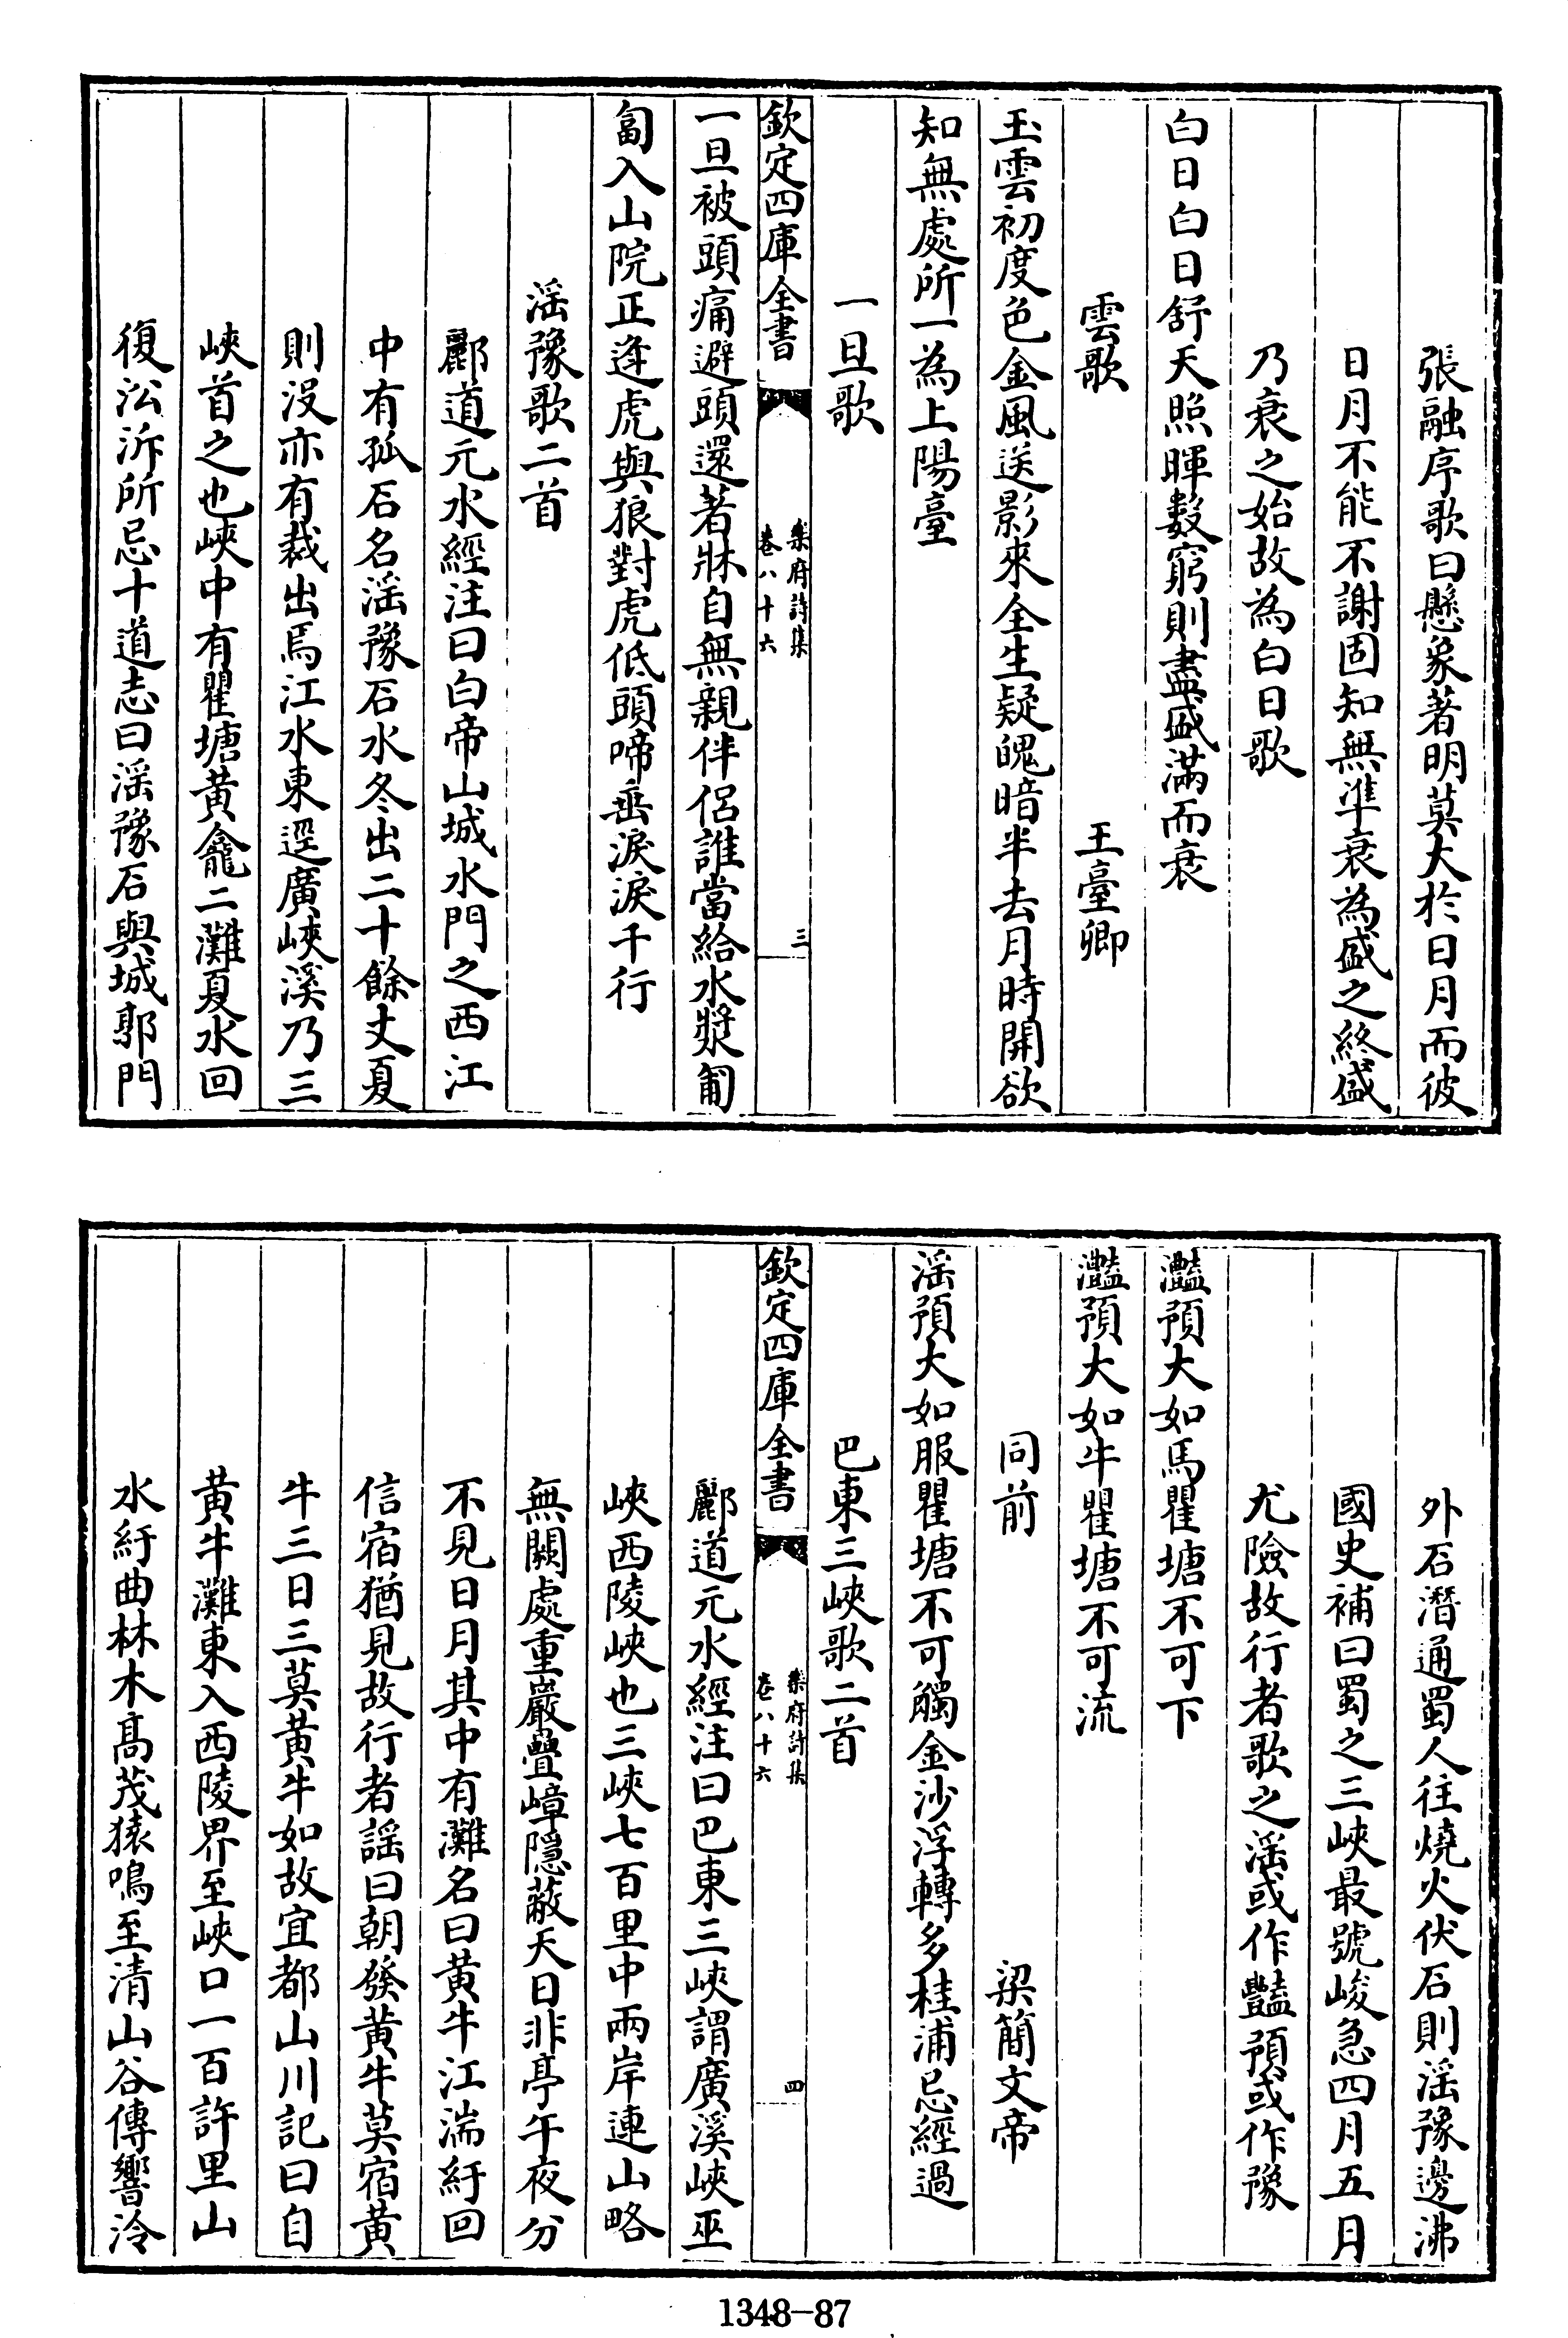 張融序歌曰懸象著明莫大於日月而彼
日月不能不謝固知無準衰為盛之終盛
乃衰之始故為白日歌
白日白日舒天照暉數窮則盡盛滿而衰
雲歌 王臺卿
玉雲初度色金風送影來全生疑魄暗半去月時開欲
知無處所一為上陽臺
一旦歌
欽定四庫全書 樂府詩集 卷八十六 三
一旦被頭痛避頭還著牀自無親伴侶誰當給水漿匍
匐入山院正逢虎與狼對虎低頭啼垂淚淚千行
滛豫歌二首
酈道元水經注曰白帝山城水門之西江
中有孤石名滛豫石水冬出二十餘丈夏
則沒亦有裁出焉江水東逕廣峽溪乃三
峽首之也峽中有瞿塘黃龕二灘夏水回
復㳂泝所忌十道志曰滛豫石與城郭門
外石潛通蜀人往燒火伏石則滛豫邊沸
國史補曰蜀之三峽最號峻急四月五月
尤險故行者歌之滛或作豔預或作豫
灩預大如馬瞿塘不可下
灩預大如牛瞿塘不可流
同前 梁簡文帝
滛預大如服瞿塘不可觸金沙浮轉多桂浦忌經過
巴東三峽歌二首
欽定四庫全書 樂府詩集 卷八十六 四
酈道元水經注曰巴東三峽謂廣溪峽巫
峽西陵峽也三峽七百里中兩岸連山略
無闕處重巖疊嶂隱蔽天日非亭午夜分
不見日月其中有灘名曰黃牛江湍紆回
信宿猶見故行者謡曰朝發黃牛莫宿黃
牛三日三莫黃牛如故宜都山川記曰自
黃牛灘東入西陵界至峽口一百許里山
水紆曲林木髙茂猿鳴至清山谷傳響泠
1348—87